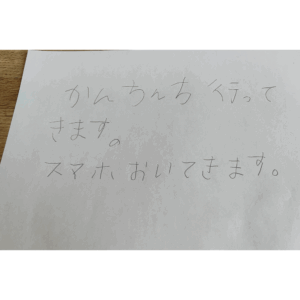 かんちんち行って
きます。
スマホおいてきます。